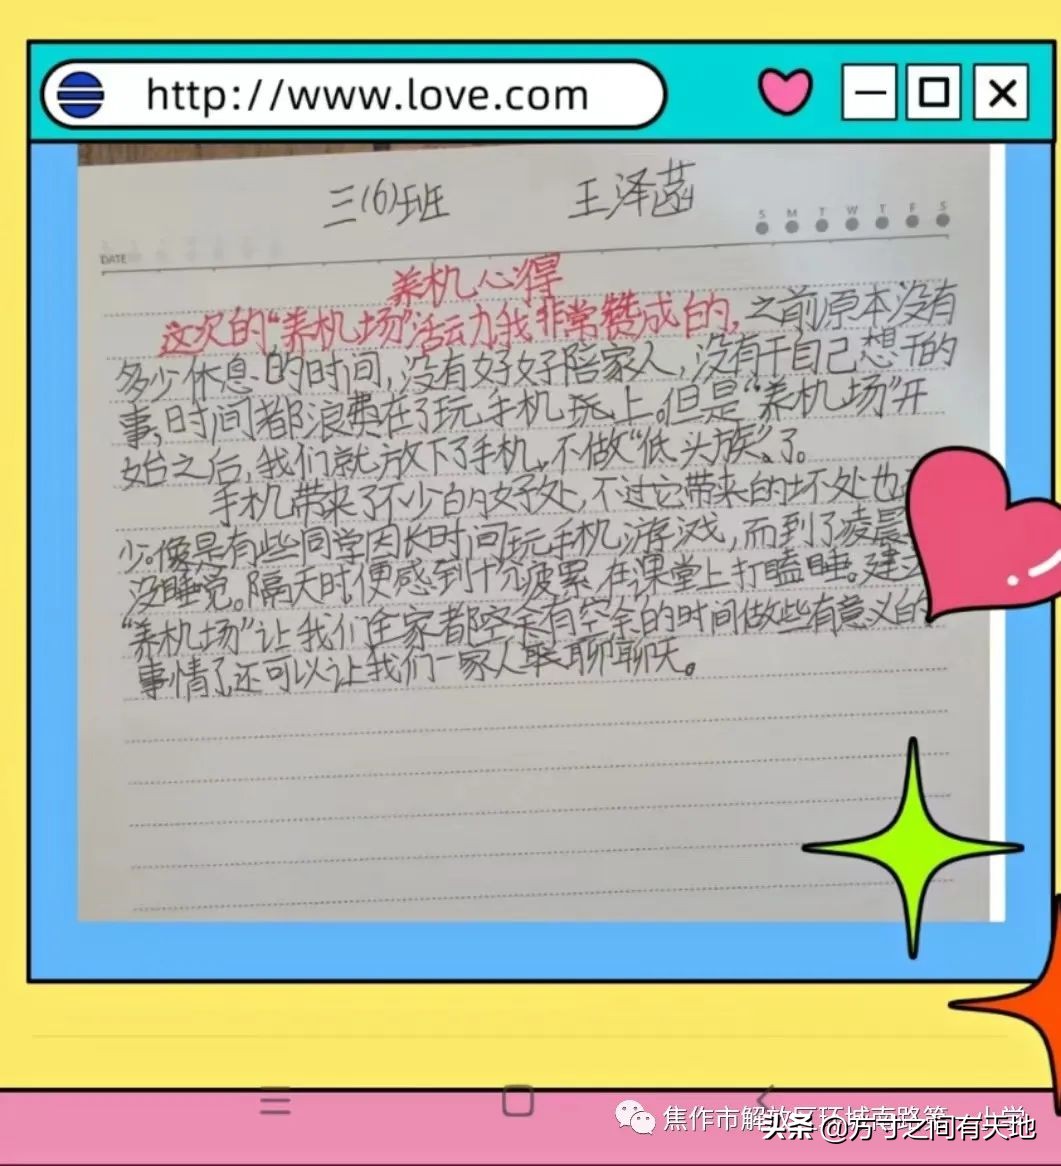 http://www.love.com
三(6)班 王泽菡
S M T W T F S
DATE
养机心得
这次的“养机场”活动我非常赞成的,之前原本没有
多少休息的时间,没有好好陪家人,没有干自己想干的
事,时间都浪费在了玩手机玩上。但是“养机场”开
始之后,我们就放下了手机,不做“低头族”了。
手机带来了不少的好处,不过它带来的坏处也
少。像是有些同学因长时间玩手机游戏,而到了凌晨
没睡觉。隔天时便感到十分疲累,在课堂上打瞌睡。建
“养机场”让我们全家都空余有空余的时间做些有意义的
事情了,还可以让我们一家人聊聊天。
焦作市解放区环城南路第一小学
头条 @方寸之间有天地